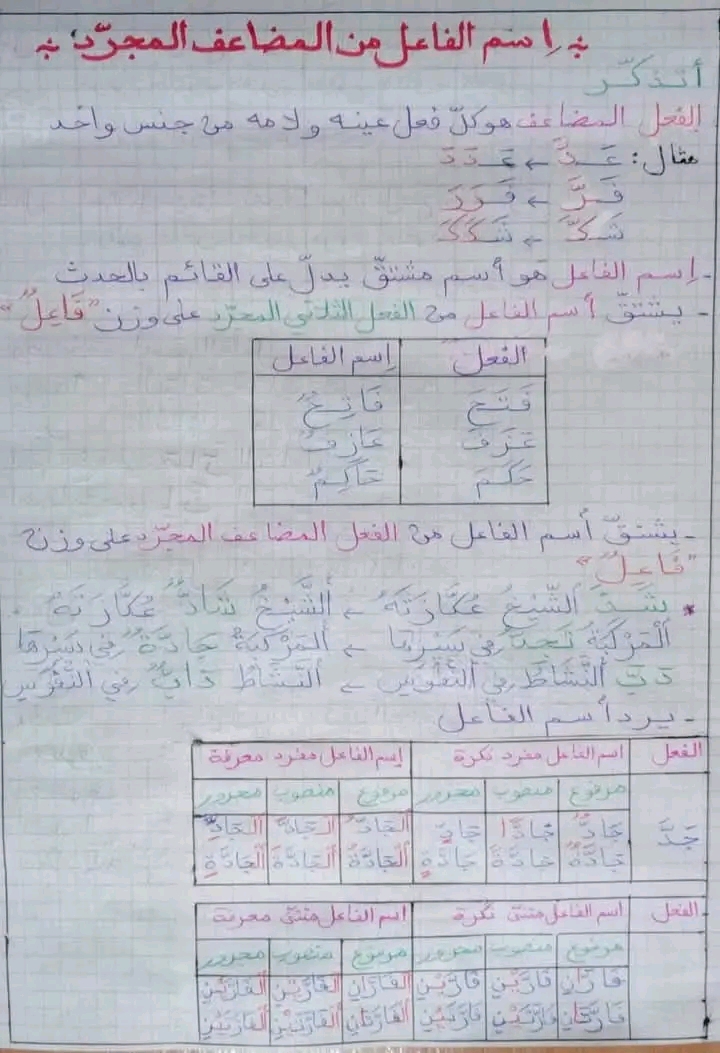 إسم الفاعل من المضاعف المجرّد
أتذكّر
الفعل المضاعف هو كلّ فعل عينه ولامه من جنس واحد
مثال: عَدَّ ← عَدَدَ
فَرَّ ← فَرَرَ
شَكَّ ← شَكَكَ
- إسم الفاعل هو أسم مشتقّ يدلّ على القائم بالحدث
- يشتقّ أسم الفاعل من الفعل الثلاثي المجرّد على وزن "فَاعِلٌ"
الفعل إسم الفاعل
فَتَحَ فَاتِحٌ
عَزَفَ عَازِفٌ
حَكَمَ حَاكِمٌ
- يشتقّ أسم الفاعل من الفعل المضاعف المجرّد على وزن
"فَاعِلٌ"
* شَدَّ الشَّيْخُ عُكَّازَتَهُ ← الشَّيْخُ شَادٌّ عُكَّازَتَهُ
اَلْمَرْكَبَةُ تَجِدُّ فِي سَيْرِهَا ← اَلْمَرْكَبَةُ جَادَّةٌ فِي سَيْرِهَا
دَبَّ النَّشَاطُ فِي النُّفُوسِ ← النَّشَاطُ دَابٌّ فِي النُّفُوسِ
- يرد أسم الفاعل
الفعل اسم الفاعل مفرد نكرة إسم الفاعل مفرد معرفة
مرفوع منصوب مجرور مرفوع منصوب مجرور
جَدَّ جَادٌّ جَادًّا جَادٍّ الجَادُّ الجَادَّ الجَادِّ
جَادَّةٌ جَادَّةً جَادَّةٍ الجَادَّةُ الجَادَّةَ الجَادَّةِ
الفعل اسم الفاعل مثنى نكرة اسم الفاعل مثنى معرفة
مرفوع منصوب مجرور مرفوع منصوب مجرور
فَارَّانِ فَارَّيْنِ فَارَّيْنِ الفَارَّانِ الفَارَّيْنِ الفَارَّيْنِ
فَارَّتَانِ فَارَّتَيْنِ فَارَّتَيْنِ الفَارَّتَانِ الفَارَّتَيْنِ الفَارَّتَيْنِ